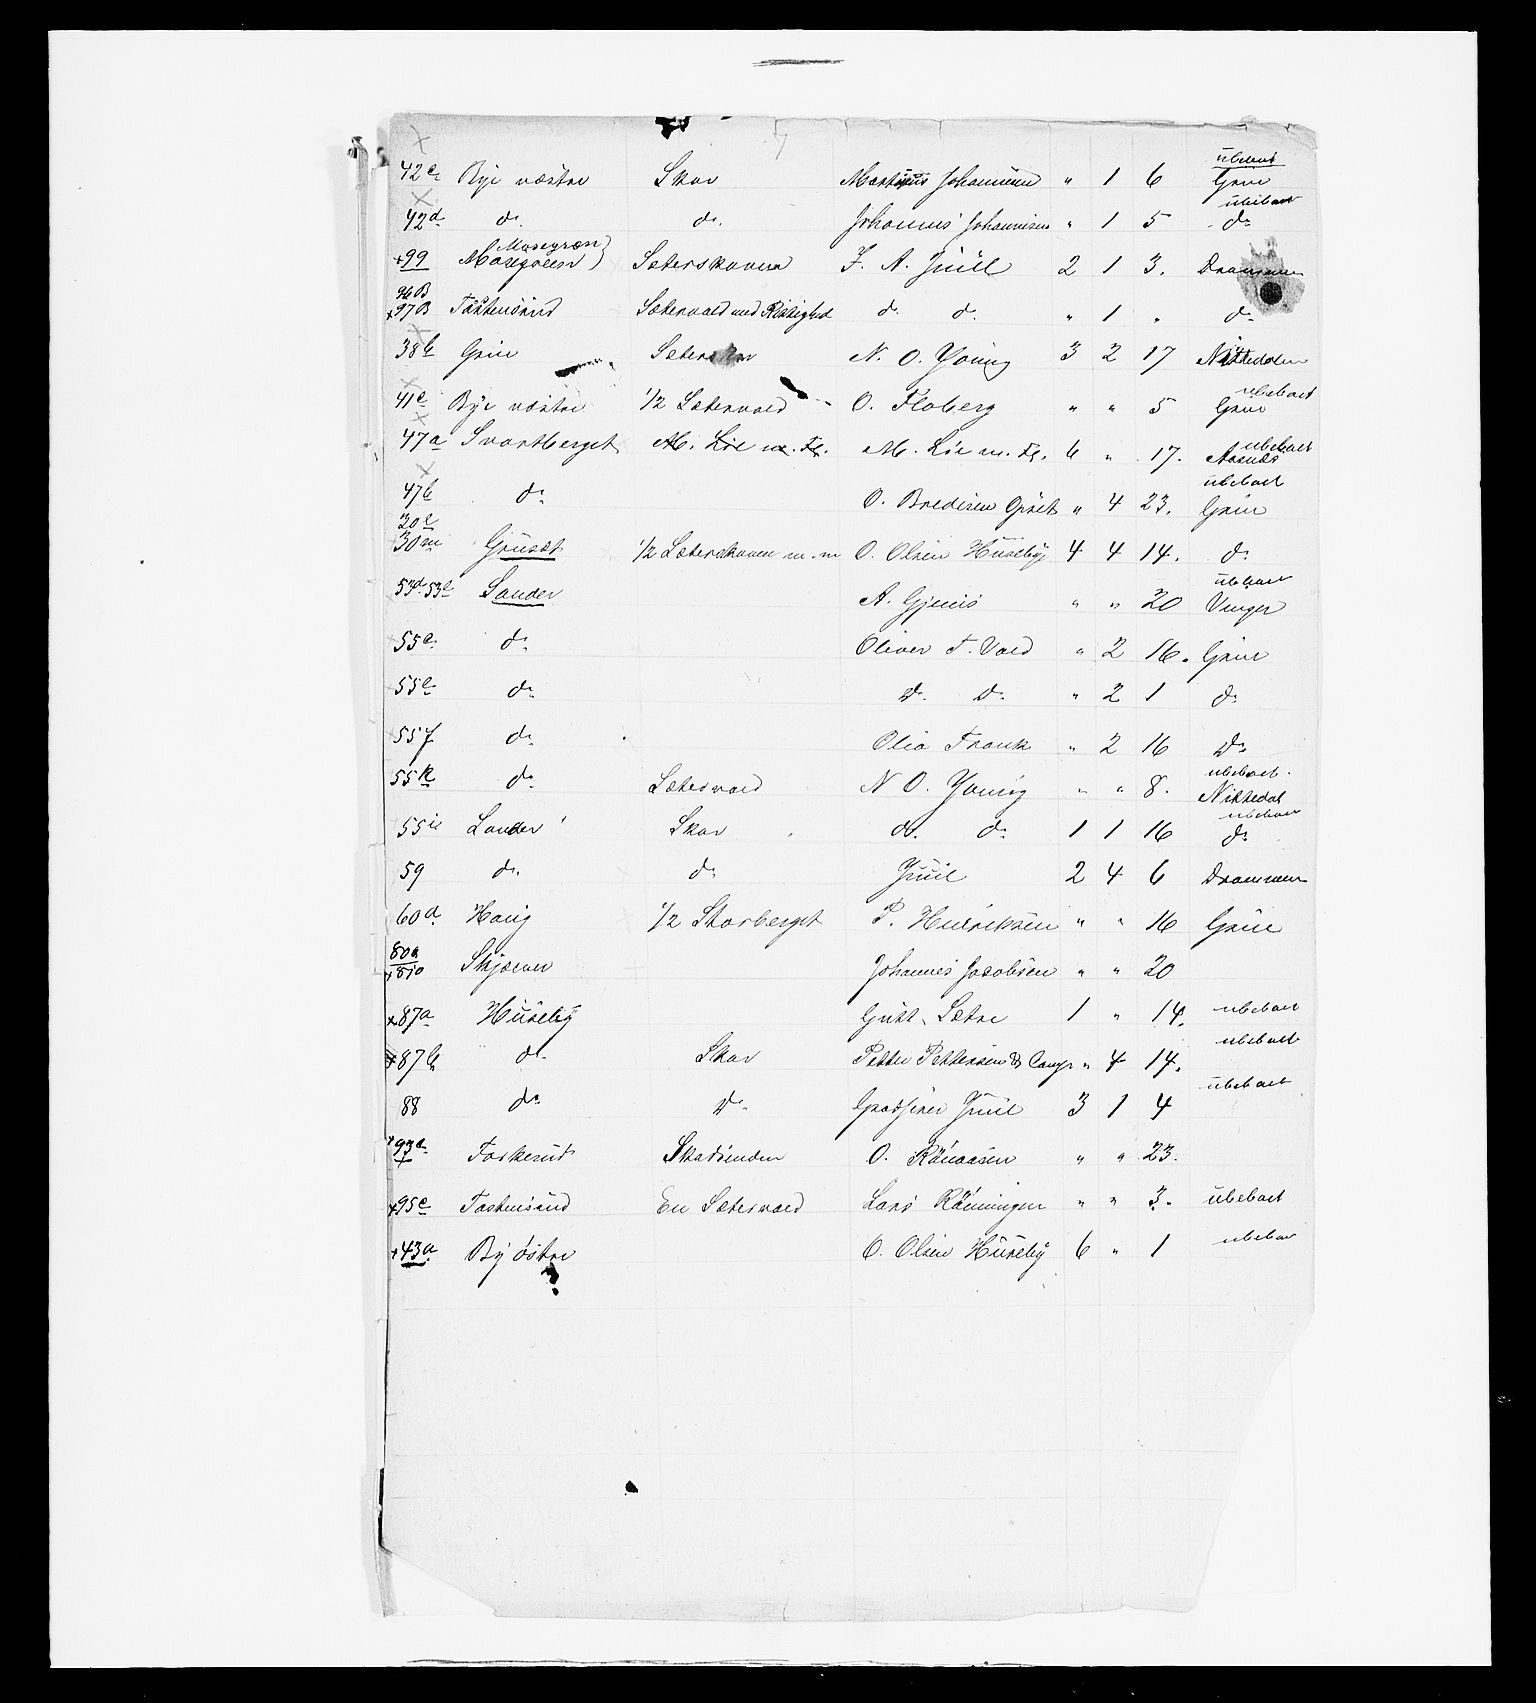 42c Bye vestre Skov Martinus Johannesen " 1 6 ubeboet Grue
42d do. do. Johannes Johannesen " 1 5 ubeboet do
+99 Mosegroen Mosegreen) Sæterskoven F. A. Juul 2 1 3. Drammen
96B +97B Taskensrud Sætervold med Rettighed do do. " 1 " do
38b Grue N. O. Young 3 2 17 Nittedalen
41e Bye vestre 1/2 Sætervold O. Floberg " " 5 ubeboet Grue
47a Svartberget M. Lie m. Fl. M. Lie m. Fl. 6 " 17. ubeboet Aasnes
47b do O. Bredesen " 4 23. ubeboet Grue
30l 30m Gruset 1/2 Sæterskoven m. m O. Olsen Huseby 4 4 14. do
53d 53e Sander A. " " 20 ubeboet Vinger
55a do Oliver T. Vold " 2 16. Grue
55e do do. do. " 2 1 do
55f do Olia Frank " 2 16 do
55k do Sætervold N O. Young " " 8. ubeboet. Nittedal
55i Sander Skov do. do. 1 1 16 ubeboet do
59 do. do. Juul 2 4 6 Drammen
60d Haug 1/2 Storberget P. Henriksen " " 16 Grue
80a +810 Skjæren Johannes Jacobsen " " 20
+87a Huseby Gutt. Sætre 1 " 14. ubeboet
+87b do. Skov Petter Pettersen & Comp " 4 14. ubeboet
88 do do. Grosserer Juul 3 1 4 ubeboet
+93d Taskerud O. Rønaasen " " 23.
+95c Taskensrud En Sætervold Lars Rønningen " " 3. ubeboet
+43a By østre O. Olsen Huseby 6 " 1 ubeboet